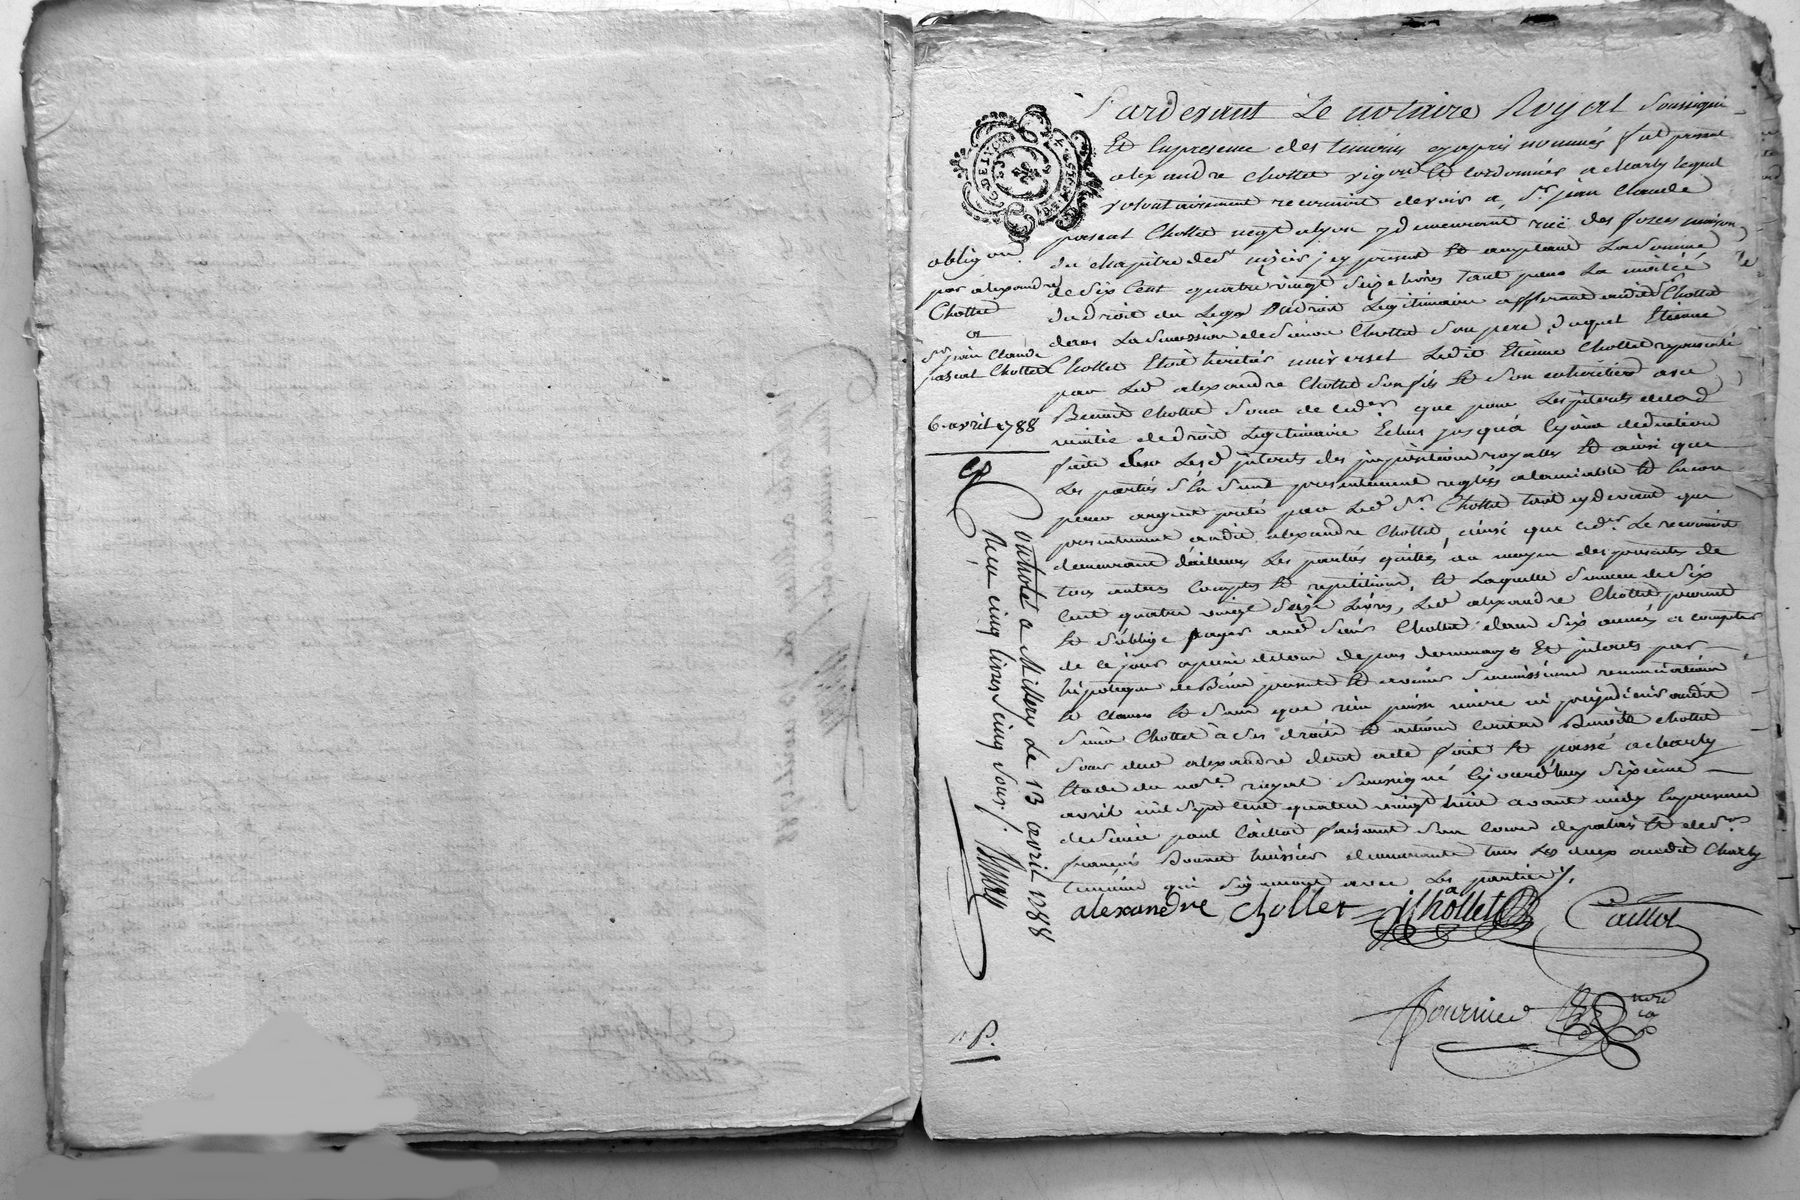 Pardevant Le notaire Royal soussigné
Et En presence des temoins cyapres nommés fut present
alexandre Chollet vigon et cordonnier a charly lequel
volontairement reconnoit devoir a Sr jean Claude
pascal Chollet negt a lyon y demeurant rue des forces maison
du chapitre de st nizier, icy present et acceptant La Somme
de Six Cent quatre vingt Seize livres tant pour La moitié
du droit du Legs Du droit Legitimaire afferant audit Sr Chollet
dans La Succession de Simon Chollet Son pere, duquel Etienne
Chollet Etoit heritier universel Ledit Etienne Chollet representé
par Led alexandre Chollet Son fils et Son coheritier avec
Benoit Chollet que pour Les jnterets de lad
moitié de droit Legitimaire Echus jusqu'a ce jour deduction
faite Sur Lesd jnterets des impositions royalles et ainsi que
Les parties L'ont presentement reglés a lamiable et Encore
pour argent preté par Led Sr Chollet tout cy devant que
presentement audit alexandre Chollet, ainsi que Le reconnoit
demeurant d'ailleurs Les parties quittes au moyen des presentes de
tous autres Comptes et repetitions, et Laquelle Somme de Six
Cent quatre vingt Seize Livres, Led alexandre Chollet promet
et S'oblige payer aud Sieur Chollet dans Six années a compter
de ce jour a peine de tous depens dommages Et jnterets par
hipoteque de Biens presents et avenir Soumissions renonciations
et Clauses et Sans que rien puisse nuire ni prejudicier audit
Sieur Chollet a Ses droits et actions Contre Benoite chollet
Soeur dud alexandre dont acte fait et passé a charly
Etude du nore royal Soussigné Ce jourd'huy Sixieme
avril mil Sept Cent quatre vingt huit avant midy En presence
de Sieur paul Caillot faisant Son cours de palais et de Sr
françois huissier demeurants tous Les deux audit Charly
temoins qui Signeront avec Les parties /.
alexandre chollet jChollet Caillot
Fournier nore
G. DE LYON
obligaon
par alexandre
Chollet
a
Sr jean Claude
pascal Chollet
6. avril 1788
Controlé a Millery Le 13 avril 1788
Reçu cinq livres cinq sous /.